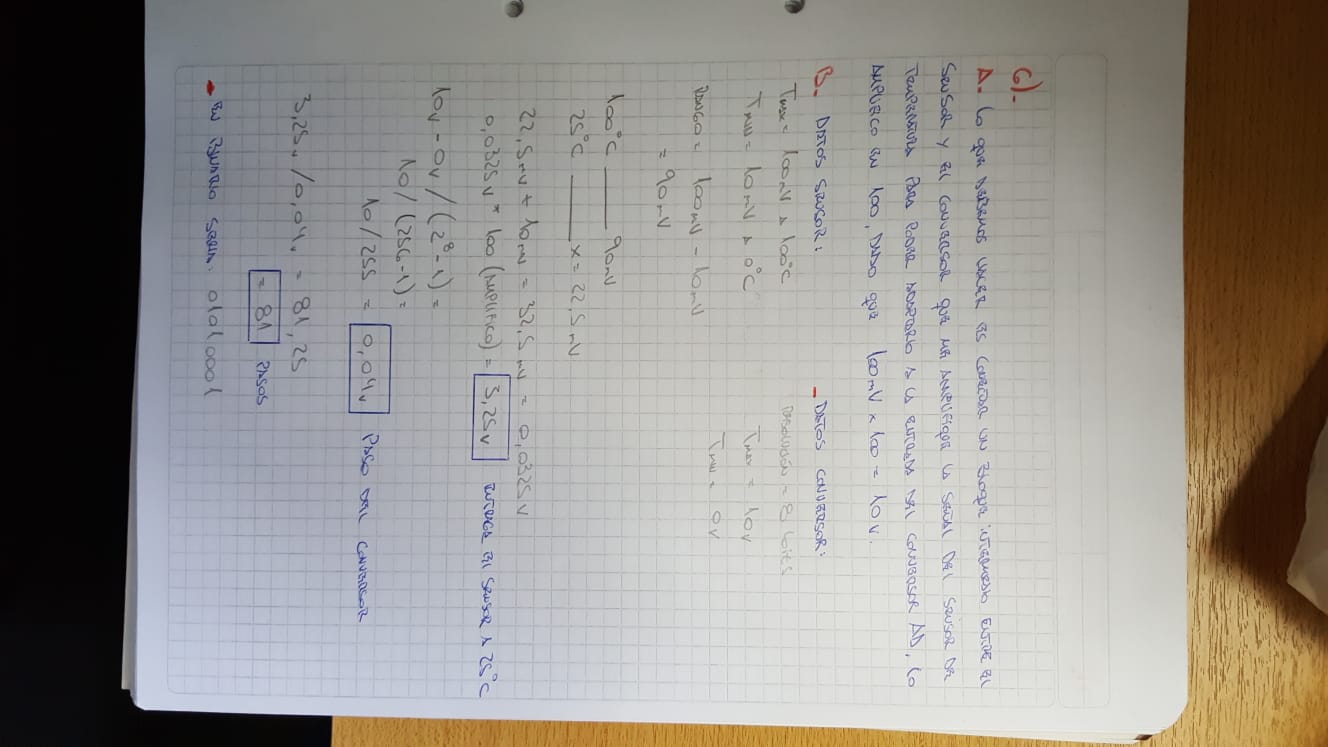 6).
A. LO QUE DEBEMOS HACER ES CONECTAR UN BLOQUE INTERMEDIO ENTRE EL
SENSOR Y EL CONVERSOR QUE ME AMPLIFIQUE LA SEÑAL DEL SENSOR DE
TEMPERATURA PARA PODER ADAPTARLO A LA ENTRADA DEL CONVERSOR AD, LO
AMPLIFICO EN 100, DADO QUE 100mV x 100 = 10V.
B. DATOS SENSOR: - DATOS CONVERSOR:
Tmax = 100mV A 100°C RESOLUCIÓN = 8 bits
Tmin = 10mV A 0°C Tmax = 10V
Tmin = 0V
RANGO = 100mV - 10mV
= 90mV
100°C ——— 90mV
25°C ——— x = 22,5mV
22,5mV + 10mV = 32,5mV = 0,0325V
0,0325V * 100 (AMPLIFICO) = 3,25V ENTREGA EL SENSOR A 25°C
10V - 0V / (2⁸ - 1) =
10 / (256 - 1) =
10 / 255 = 0,04V PASO DEL CONVERSOR
3,25V / 0,04V = 81,25
= 81 PASOS
- EN BINARIO SERIA: 01010001